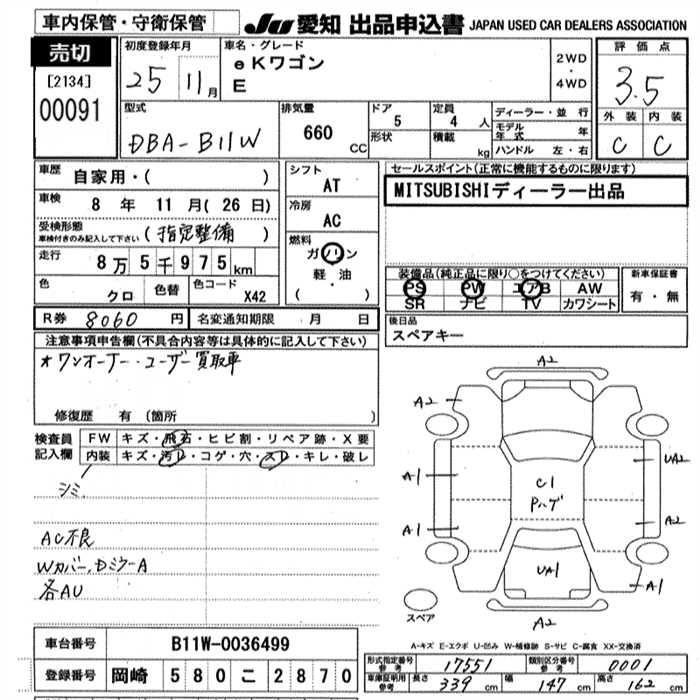 車内保管・守衛保管
JU 愛知 出品申込書 JAPAN USED CAR DEALERS ASSOCIATION
売切
[2134]
00091
初度登録年月
25 11月
車名・グレード
eKワゴン
E
2WD
・
4WD
評価点
3.5
外装 内装
C C
型式
DBA-B11W
排気量
660 CC
ドア 5
形状
定員 4 人
積載 kg
ディーラー・並行
モデル年式 年
ハンドル 左・右
車歴 自家用・( )
車検 8 年 11 月 ( 26 日)
受検形態
車検付きのみ記入して下さい (指定整備)
走行 8万5千975km
色 クロ 色替 色コード X42
シフト
AT
冷房
AC
燃料
ガソリン
軽・油
( )
セールスポイント(正常に機能するものに限ります)
MITSUBISHIディーラー出品
装備品(純正品に限り○をつけてください)
PS PW エアB AW
SR ナビ TV カワシート
新車保証書
有・無
R券 8060 円 名変通知期限 月 日
後日品
スペアキー
注意事項申告欄(不具合内容等は具体的に記入して下さい)
*ワンオーナー・ユーザー買取車
修復歴 有 (箇所 )
検査員
記入欄
FW キズ・飛石・ヒビ割・リペア跡・X要
内装 キズ・汚レ・コゲ・穴・スレ・キレ・破レ
シミ
AC不良
Wカバー、DミラーA
各AU
A2
A2
A1
A1
C1
Pハゲ
UA2
A2
UA1
A1
A2
スペア
A-キズ E-エクボ U-凹み W-補修跡 S-サビ C-腐食 XX-交換済
車台番号 B11W-0036499
登録番号 岡崎 580 こ 2870
形式指定番号
参考 17551 類別区分番号
参考 0001
車庫証明用
参考 長さ 339 cm 幅 147 cm 高さ 162 cm